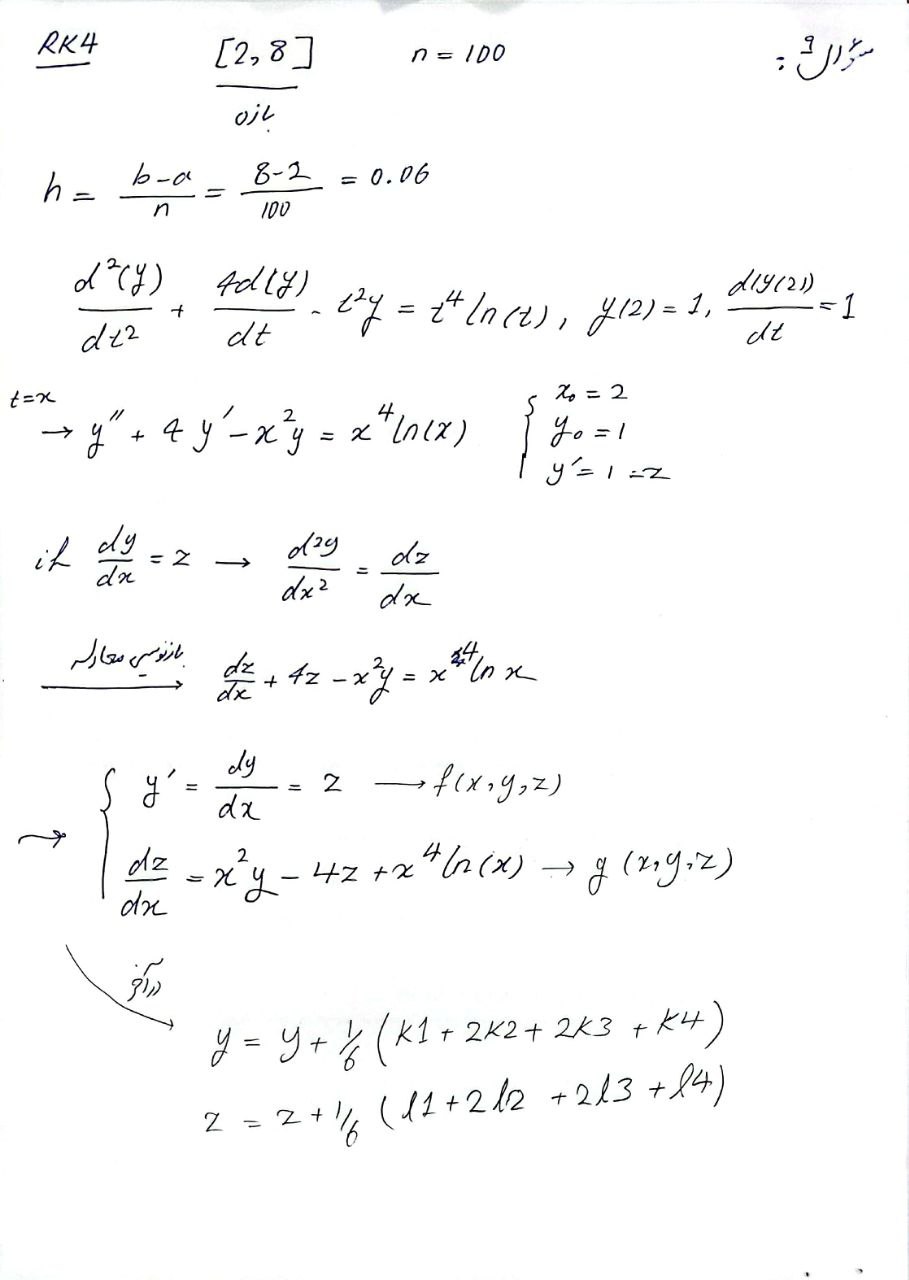 RK4 [2,8] n = 100 سوال 9 :
بازه
h = b-a/n = 8-2/100 = 0.06
d²(y)/dt² + 4d(y)/dt - t²y = t⁴ ln(t), y(2) = 1, d(y(2))/dt = 1
t=x → y″ + 4y′ - x²y = x⁴ln(x) { x₀ = 2
y₀ = 1
y′ = 1 = z
if dy/dx = z → d²y/dx² = dz/dx
بازنویسی معادله → dz/dx + 4z - x²y = x⁴ ln x
→ { y′ = dy/dx = z → f(x,y,z)
dz/dx = x²y - 4z + x⁴ ln(x) → g(x,y,z)
در آخر
y = y + 1/6 (K1 + 2K2 + 2K3 + K4)
z = z + 1/6 (l1 + 2l2 + 2l3 + l4)